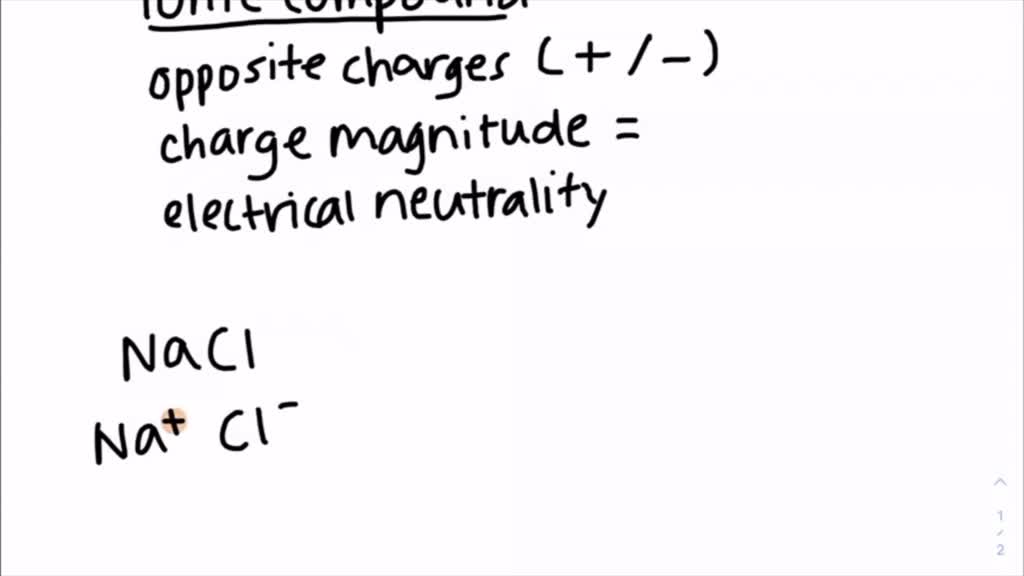 ionic compound
opposite charges (+/-)
charge magnitude =
electrical neutrality
NaCl
Na⁺ Cl⁻
1
/
2